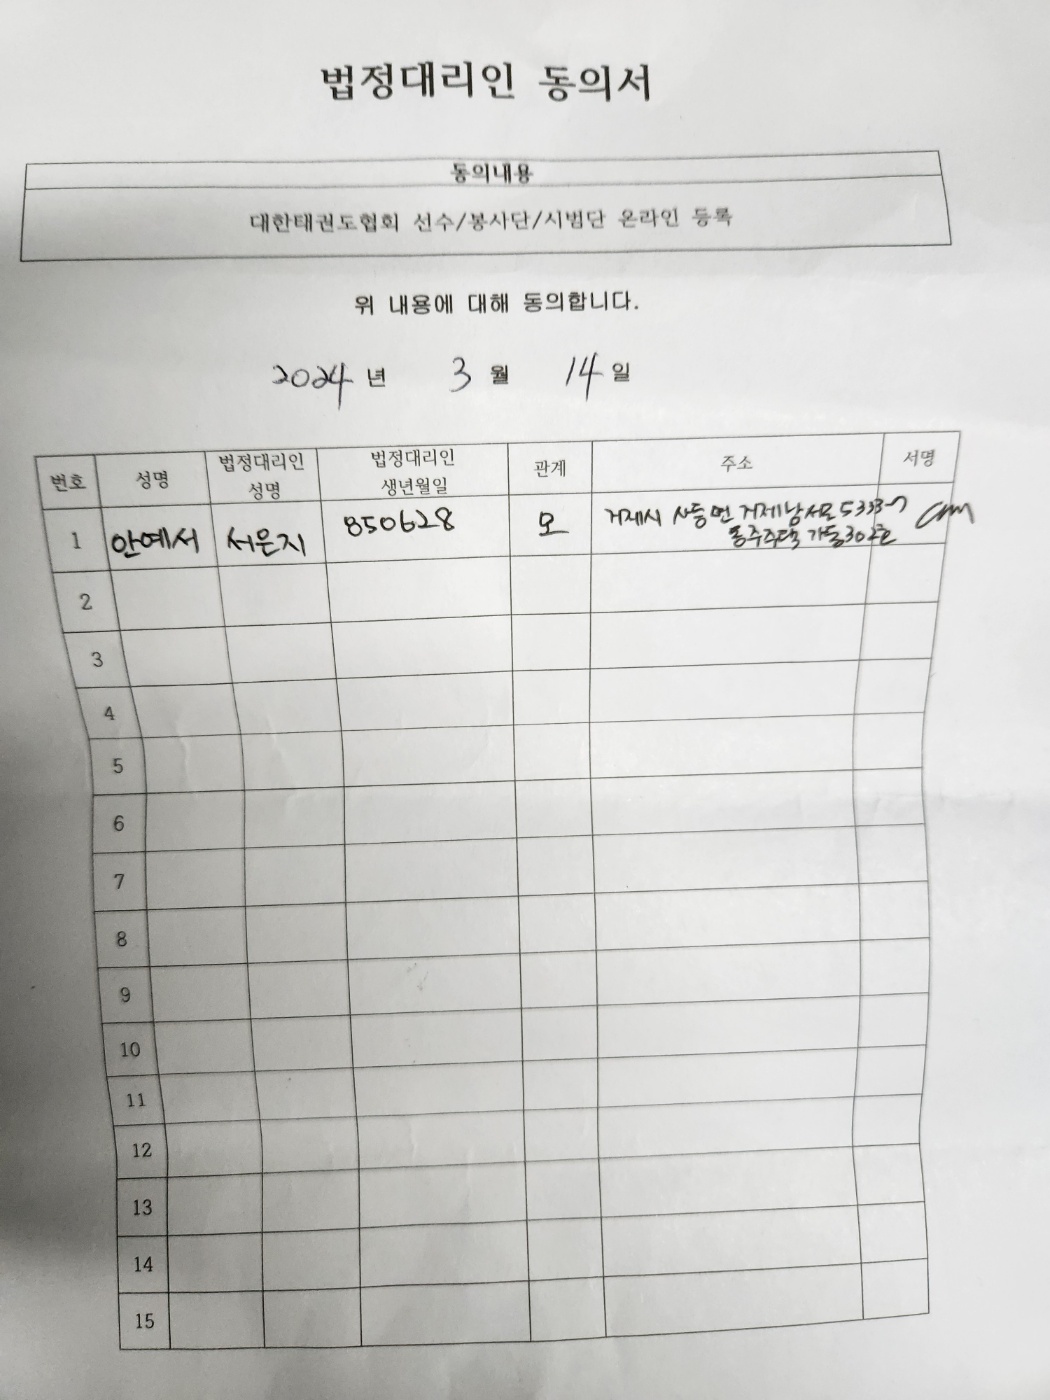 법정대리인 동의서
동의내용
대한태권도협회 선수/봉사단/시범단 온라인 등록
위 내용에 대해 동의합니다.
2024 년 3 월 14 일
번호 성명 법정대리인 성명 법정대리인 생년월일 관계 주소 서명
1 안예서 서은지 850628 모 거제시 사등면 거제남서로 5333-7
동주주택 가동302호
2
3
4
5
6
7
8
9
10
11
12
13
14
15